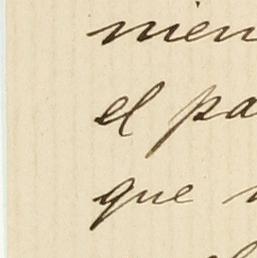 mien
el pa
que